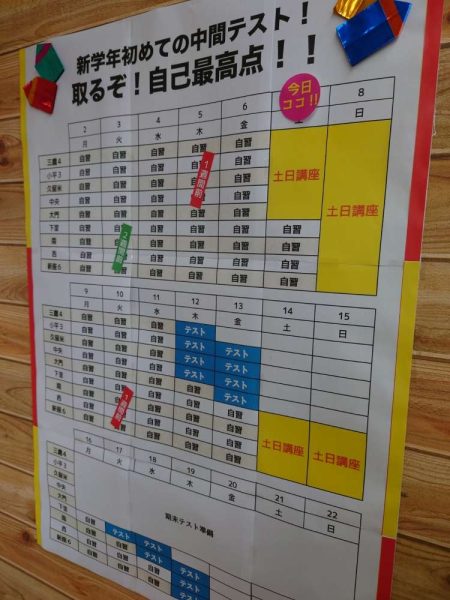 新学年初めての中間テスト！
取るぞ！自己最高点！！
今日
ココ!!
2 3 4 5 6 8
月 火 水 木 金 日
三鷹4 自習 自習 自習 自習 自習
小平3 自習 自習 自習 自習 土日講座
久留米 自習 自習 自習 自習 土日講座
中央 自習 自習 自習 自習
大門 自習 自習 自習 自習 自習
下里 自習 自習 自習 自習 自習
南 自習 自習 自習 自習 自習
西 自習 自習 自習 自習 自習
新座6 自習 自習 自習 自習 自習 自習
1週間前
2週間前
9 10 11 12 13 14 15
月 火 水 木 金 土 日
三鷹4 自習 自習 自習 テスト
小平3 自習 自習 自習 テスト テスト
久留米 自習 自習 自習 テスト テスト
中央 自習 自習 自習 テスト テスト
大門 自習 自習 自習 テスト テスト
下里 自習 自習 自習 自習 テスト
南 自習 自習 自習 自習
西 自習 自習 自習 土日講座 土日講座
新座6 自習 自習 自習 自習
16 17 18 19 20 21 22
月 火 水 木 金 土 日
三鷹4
小平3
久留米
中央
大門
下里
南 自習 テスト テスト
西 自習 自習 テスト
新座6 自習 自習 テスト
期末テスト準備